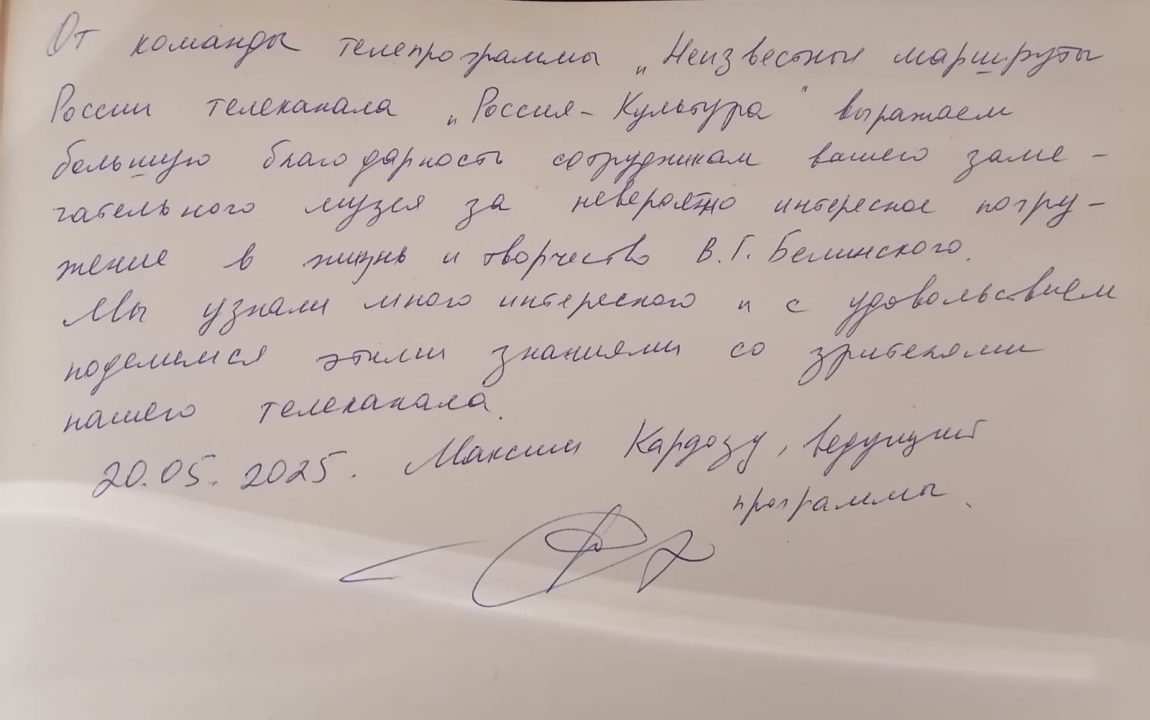 От команды телепрограммы „Неизвестные маршруты
России телеканала „Россия-Культура" выражаем
большую благодарность сотрудникам вашего заме-
чательного музея за невероятно интересное погру-
жение в жизнь и творчество В.Г. Белинского.
Мы узнали много интересного и с удовольствием
поделимся этими знаниями со зрителями
нашего телеканала.
20.05.2025. Максим Кардозу, ведущий
программы.